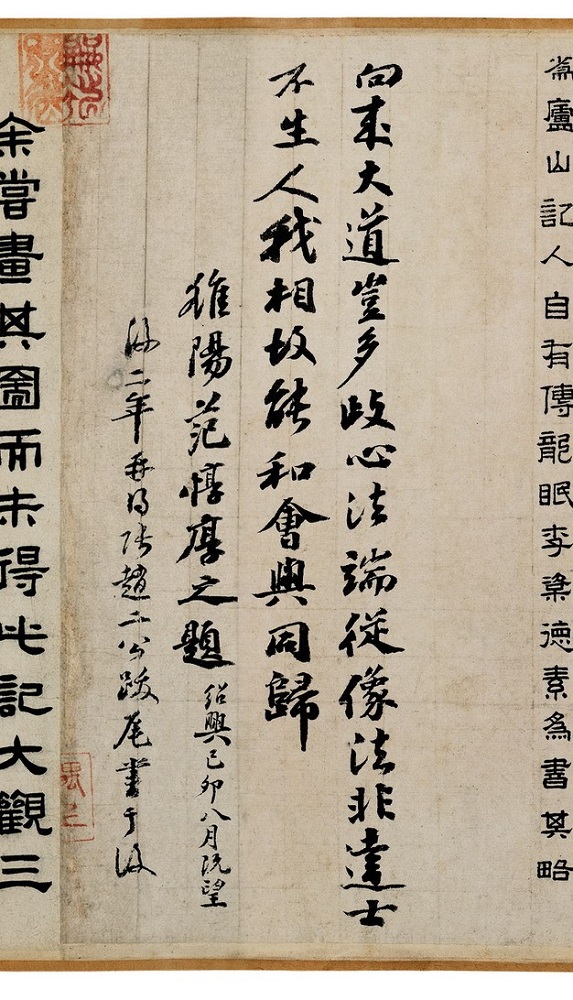 廬山記人自有傳龍眠李楶德素為書其略
向來大道豈多歧心法端從像法非達士
不生人我相故能和會與同歸
雒陽范惇厚之題 紹興己卯八月既望
後二年再得張趙二公跋尾書于後
余嘗畫其圖而未得此記大觀三